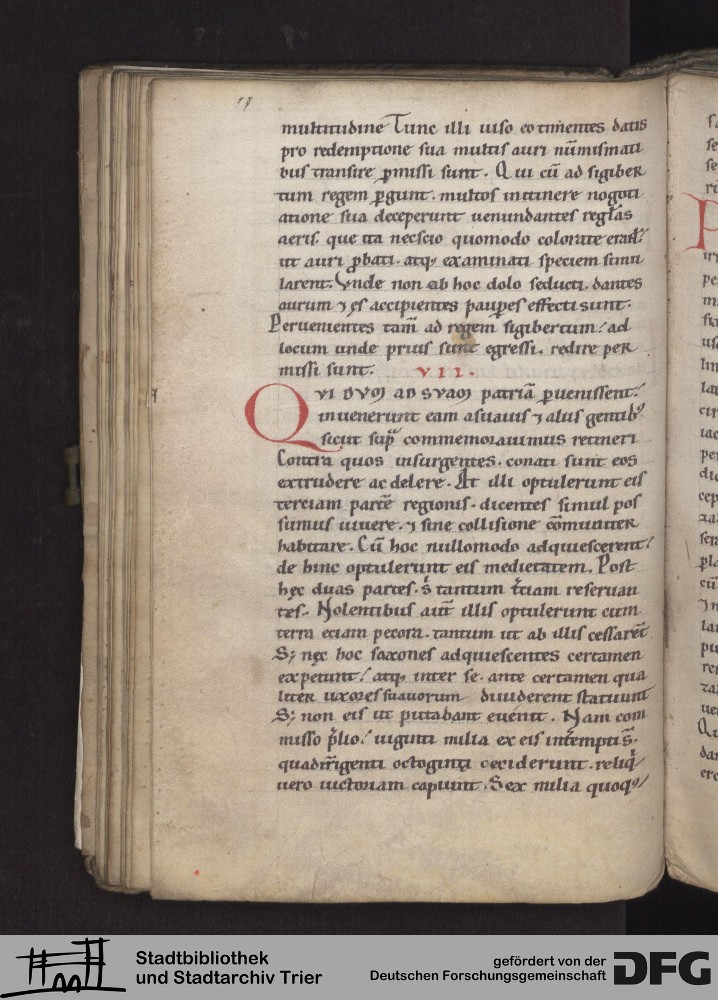 multitudine Tunc illi uiso eo timentes datis
pro redemptione sua multis auri nūmismati
bus transire ꝑmissi sunt. Qui cū ad sigiber
tum regem ꝑgunt. multos in itinere nogoti
atione sua deceperunt uenundantes regłas
aeris. que ita nescio quomodo colorate erant.
ut auri ꝓbati. atq; examinati speciem simu
larent. Vnde non ab hoc dolo seducti. dantes
aurum ⁊ ęs accipientes pauꝑes effecti sunt.
Peruenientes tam̄ ad regem sigibertum. ad
locum unde prius sunt egressi. redire per
missi sunt. VII.
QVI DVM AD SVAM patriā ꝑuenissent.
inuenerunt eam a suauis ⁊ aliis gentib;
sicut supͣ commemorauimus retineri
Contra quos insurgentes. conati sunt eos
extrudere ac delere. At illi optulerunt eis
terciam partē regionis. dicentes simul pos
sumus uiuere. ⁊ sine collisione cōmuniter
habitare. Cū hoc nullomodo adquiescerent.
de hinc optulerunt eis medietatem. Post
hęc duas partes. s̄ tantum t̄ciam reseruan
tes. Nolentibus aut̄ illis optulerunt cum
terra eciam pecora. tantum ut ab illis cessarēt
S; nęc hoc saxones adquiescentes certamen
expetunt. atq; inter se. ante certamen qua
liter uxores suauorum diuiderent statuunt
S; non eis ut putabant euenit. Nam com
misso p̄lio. uiginti milia ex eis int̄empti s̄.
quadrīgenti octoginti ceciderunt. reliq̇
uero uictoriam capiunt. Sex milia quoq;
Stadtbibliothek
und Stadtarchiv Trier
gefördert von der
Deutschen Forschungsgemeinschaft
DFG